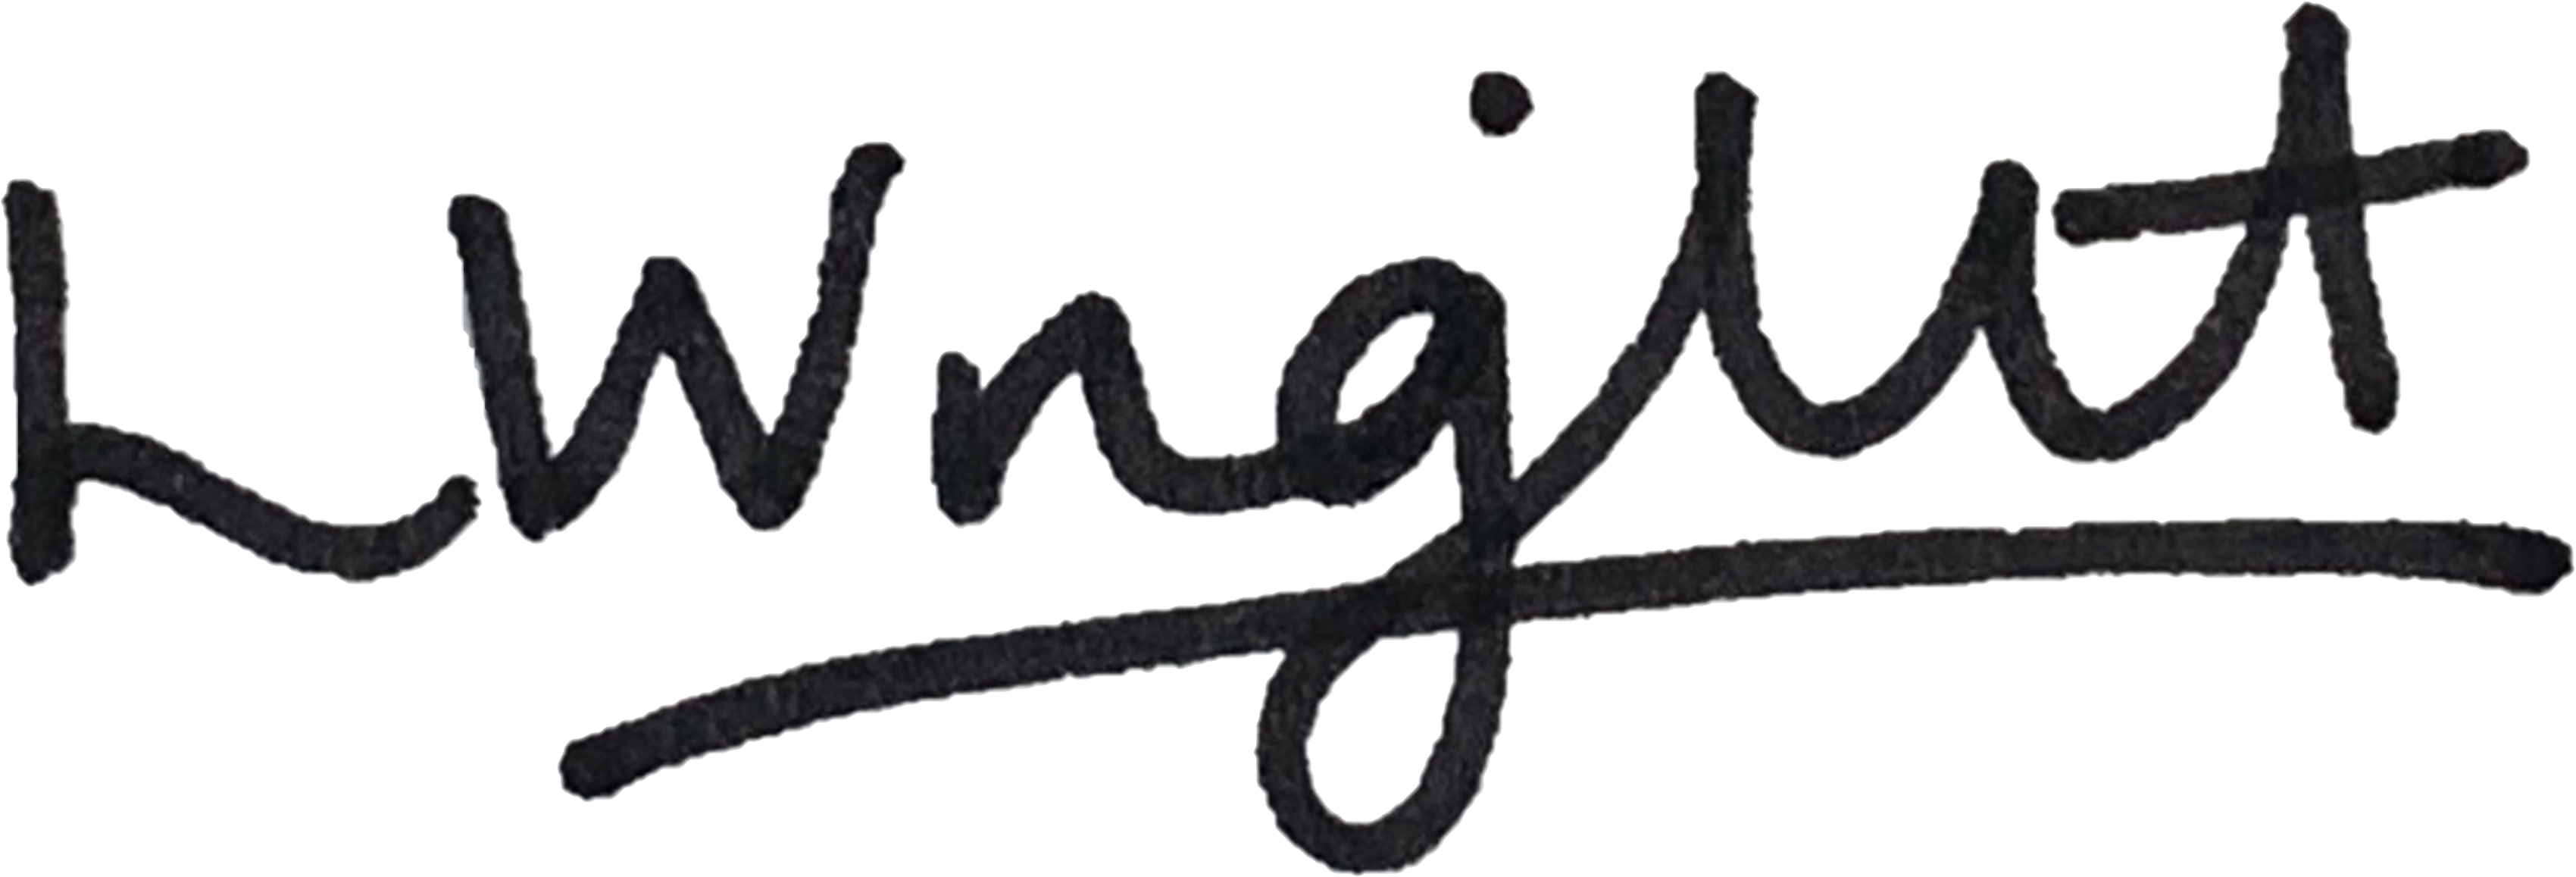 L Wright